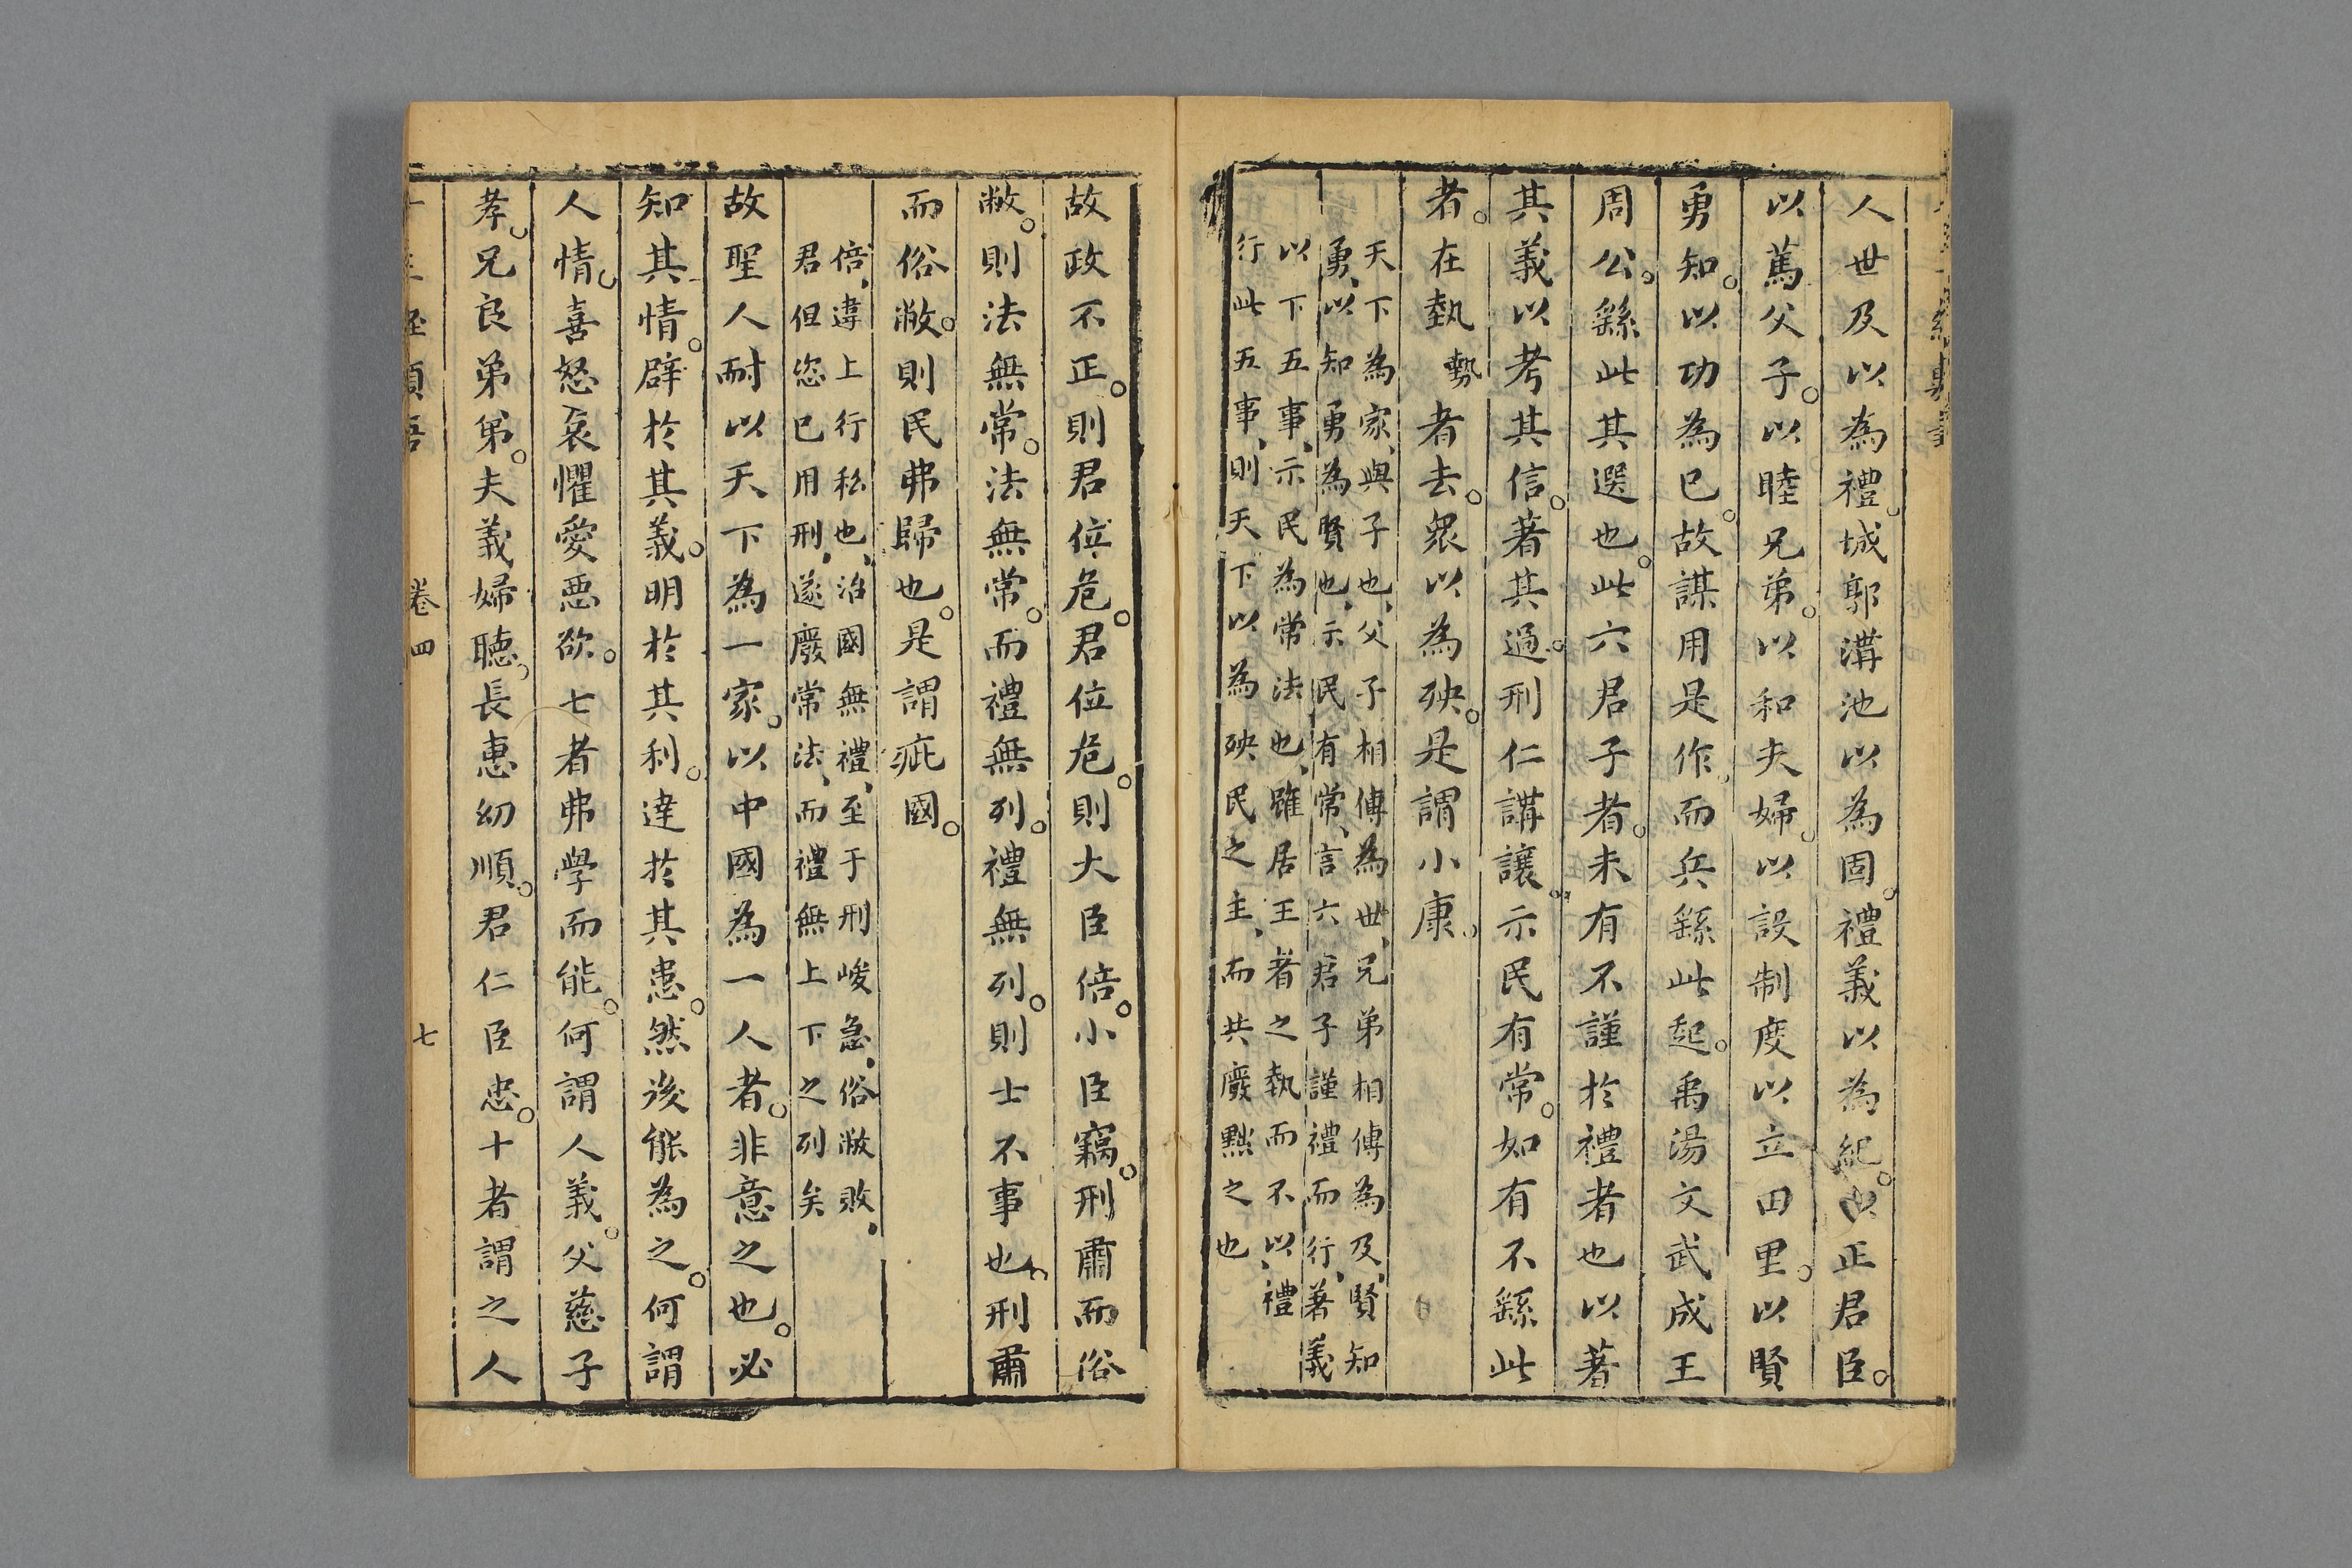 人世及以為禮城郭溝池以為固禮義以為紀以正君臣
以篤父子以睦兄弟以和夫婦以設制度以立田里以賢
勇知以功為已故謀用是作而兵繇此起禹湯文武成王
周公繇此其選也此六君子者未有不謹於禮者也以著
其義以考其信著其過刑仁講讓示民有常如有不繇此
者在埶勢者去衆以為殃是謂小康
天下為家與子也父子相傳為世兄弟相傳為及賢知
勇以知勇為賢也示民有常言六君子謹禮而行著義
以下五事示民為常法也雖居王者之埶而不以禮
行此五事則天下以為殃民之主而共廢黜之也
故政不正則君位危君位危則大臣倍小臣竊刑肅而俗
敝則法無常法無常而禮無列禮無列則士不事也刑肅
而俗敝則民弗歸也是謂疵國
倍違上行私也治國無禮至于刑峻急俗敝敗
君但恣已用刑遂廢常法而禮無上下之列矣
故聖人耐以天下為一家以中國為一人者非意之也必
知其情辟於其義明於其利達於其患然後能為之何謂
人情喜怒哀懼愛惡欲七者弗學而能何謂人義父慈子
孝兄良弟弟夫義婦聽長惠幼順君仁臣忠十者謂之人
卷四 七